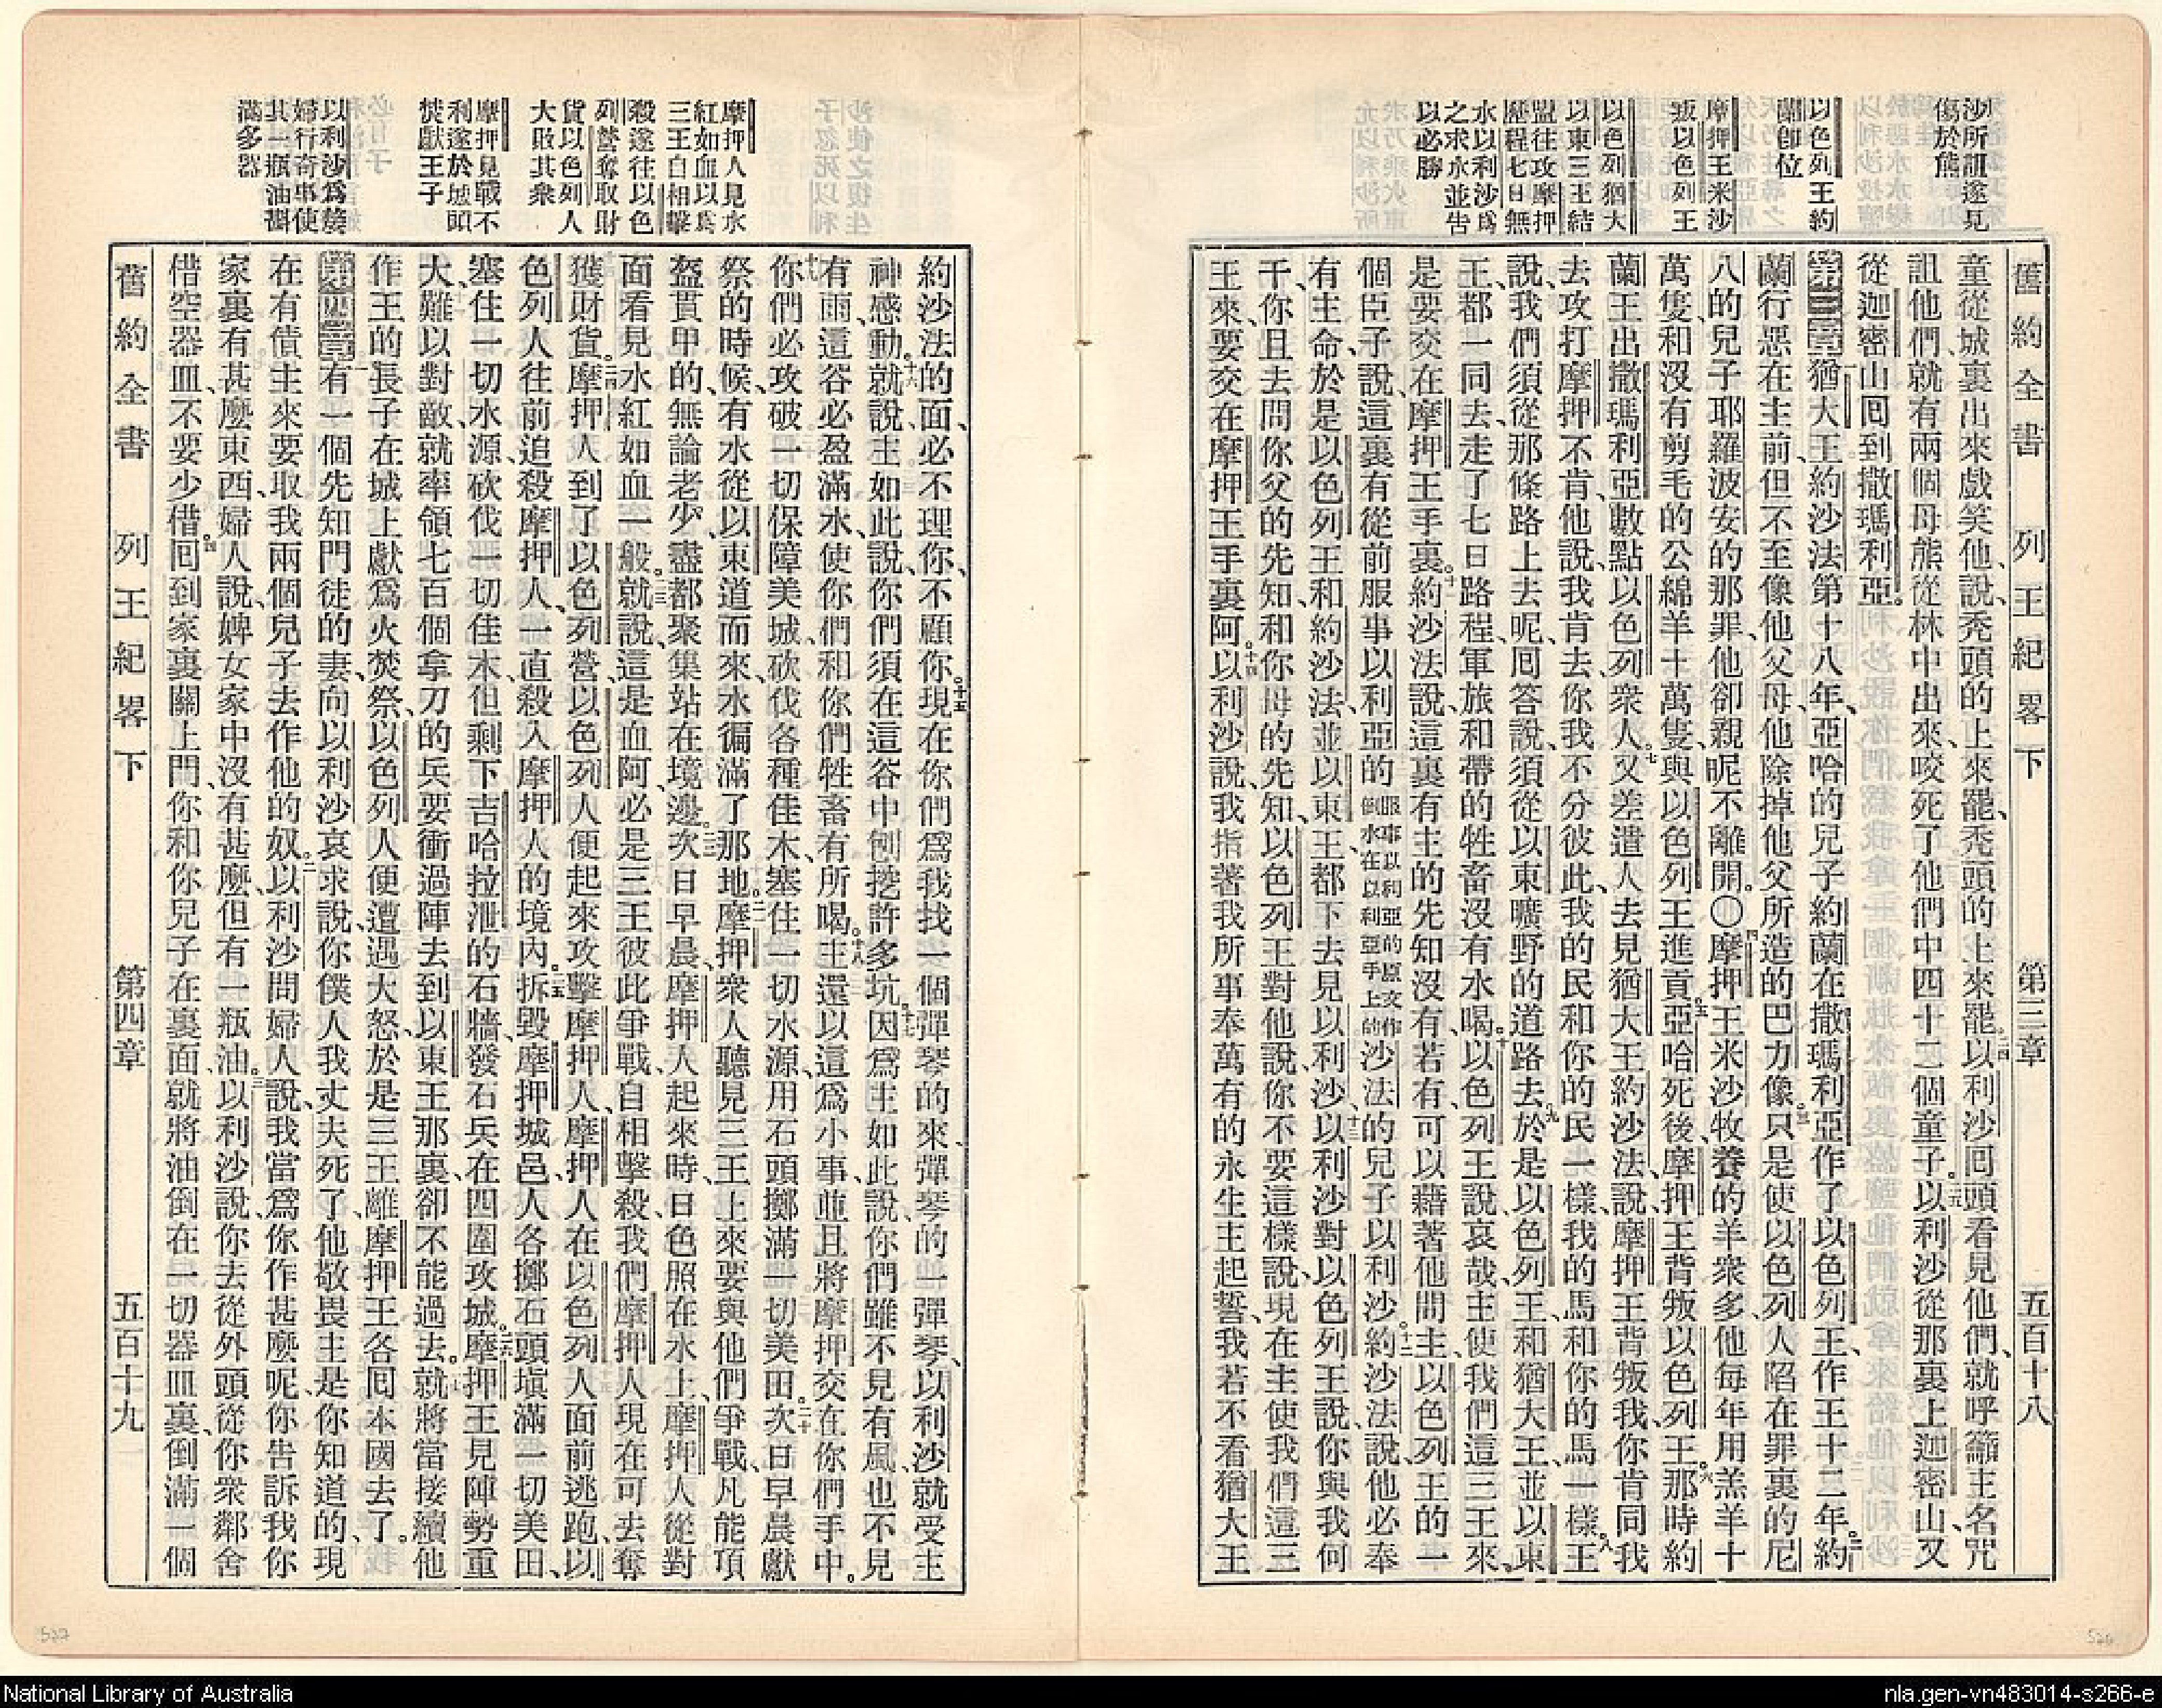 舊約全書 列王紀畧下 第三章 五百十八
沙所詛遂死
傷於熊
以色列王約
蘭卽位
摩押王米沙
叛以色列王
以色列猶大
以東三王結
盟往攻摩押
歷程七日無
水以利沙爲
之求水並告
以必勝
童從城裏出來戲笑他、說、禿頭的上來罷、禿頭的上來罷。二四以利沙囘頭看見他們、就呼籲主名咒
詛他們、就有兩個母熊從林中出來、咬死了他們中四十二個童子。二五以利沙從那裏上迦密山、又
從迦密山囘到撒瑪利亞。
第三章 一猶大王、約沙法第十八年、亞哈的兒子約蘭在撒瑪利亞作了以色列王、作王十二年。二約
蘭行惡在主前、但不至像他父母、他除掉他父所造的巴力像。三只是使以色列人陷在罪裏的尼
八的兒子耶羅波安的那罪、他卻親昵不離開。〇四摩押王米沙牧養的羊衆多、他每年用羔羊十
萬隻、和沒有剪毛的公綿羊十萬隻、與以色列王進貢。五亞哈死後、摩押王背叛以色列王。六那時約
蘭王出撒瑪利亞、數點以色列衆人。七又差遣人去見猶大王約沙法、說、摩押王背叛我、你肯同我
去攻打摩押不肯、他說、我肯去、你我不分彼此、我的民和你的民一樣、我的馬和你的馬一樣。八王
說、我們須從那條路上去呢、囘答說、須從以東曠野的道路去。九於是以色列王、和猶大王、並以東
王、都一同去、走了七日路程、軍旅和帶的牲畜沒有水喝。十以色列王說、哀哉、主使我們這三王來、
是要交在摩押王手裏。十一約沙法說、這裏有主的先知沒有、若有、可以藉著他問主、以色列王的一
個臣子說、這裏有從前服事以利亞的服事以利亞的原文作倒水在以利亞手上的沙法的兒子以利沙。十二約沙法說、他必奉
有主命、於是以色列王和約沙法並以東王、都下去見以利沙。十三以利沙對以色列王說、你與我何
干、你且去問你父的先知、和你母的先知、以色列王對他說、你不要這樣說、現在主使我們這三
王來、要交在摩押王手裏阿。十四以利沙說、我指著我所事奉萬有的永生主起誓、我若不看猶大王
舊約全書 列王紀畧下 第四章 五百十九
摩押人見水
紅如血以爲
三王自相擊
殺遂往以色
列營奪取財
貨以色列人
大敗其衆
摩押見戰不
利遂於城頭
焚獻王子
以利沙爲嫠
婦行奇事使
其一瓶油斟
滿多器
約沙法的面、必不理你、不顧你。十五現在你們爲我找一個彈琴的來、彈琴的一彈琴、以利沙就受主
神感動。十六就說、主如此說、你們須在這谷中刨挖許多坑。十七因爲主如此說、你們雖不見有風、也不見
有雨、這谷必盈滿水、使你們和你們牲畜有所喝。十八主還以這爲小事、並且將摩押交在你們手中。
十九你們必攻破一切保障美城、砍伐各種佳木、塞住一切水源、用石頭擲滿一切美田。二十次日早晨獻
祭的時候、有水從以東道而來、水徧滿了那地。二一摩押衆人聽見三王上來要與他們爭戰、凡能頂
盔貫甲的、無論老少、盡都聚集站在境邊。二二次日早晨、摩押人起來時、日色照在水上、摩押人從對
面看見水紅如血一般。二三就說、這是血阿、必是三王彼此爭戰自相擊殺、我們摩押人現在可去奪
獲財貨。二四摩押人到了以色列營、以色列人便起來攻擊摩押人、摩押人在以色列人面前逃跑、以
色列人往前追殺摩押人、一直殺入摩押人的境內。二五拆毀摩押城邑、人各擲石頭塡滿一切美田、
塞住一切水源、砍伐一切佳木、但剩下吉哈拉泄的石牆、發石兵在四圍攻城。二六摩押王見陣勢重
大、難以對敵、就率領七百個拿刀的兵、要衝過陣去到以東王那裏、卻不能過去。二七就將當接續他
作王的長子、在城上獻爲火焚祭、以色列人便遭遇大怒、於是三王離摩押王各囘本國去了。
第四章 一有一個先知門徒的妻、向以利沙哀求說、你僕人我丈夫死了、他敬畏主、是你知道的、現
在有債主來、要取我兩個兒子去作他的奴。二以利沙問婦人說、我當爲你作甚麼呢、你告訴我、你
家裏有甚麼東西、婦人說、婢女家中沒有甚麼、但有一瓶油。三以利沙說、你去從外頭從你衆鄰舍
借空器皿、不要少借。四囘到家裏、關上門、你和你兒子在裏面、就將油倒在一切器皿裏、倒滿一個
527
National Library of Australia
nla.gen-vn483014-s266-e